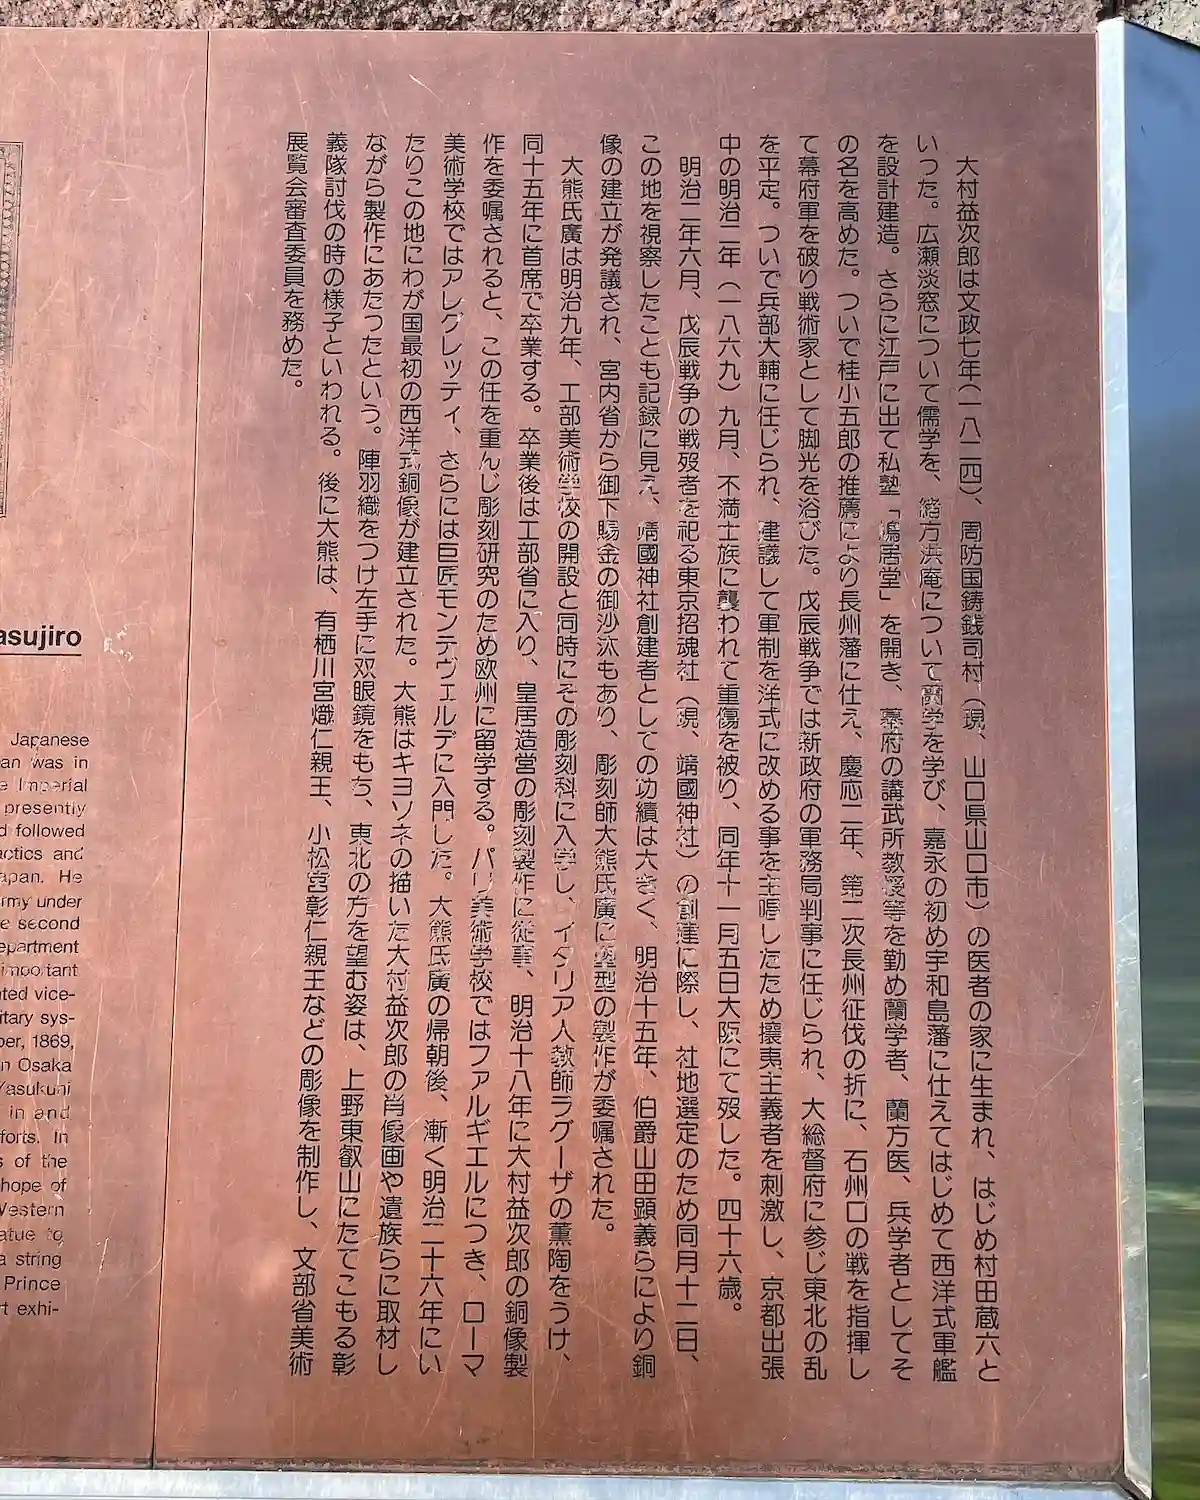 大村益次郎は文政七年(一八二四)、周防国鋳銭司村(現、山口県山口市)の医者の家に生まれ、はじめ村田蔵六と
いつた。広瀬淡窓について儒学を、緒方洪庵について蘭学を学び、嘉永の初め宇和島藩に仕えてはじめて西洋式軍艦
を設計建造。さらに江戸に出て私塾「鳩居堂」を開き、幕府の講武所教授等を勤め蘭学者、蘭方医、兵学者としてそ
の名を高めた。ついで桂小五郎の推薦により長州藩に仕え、慶応二年、第二次長州征伐の折に、石州口の戦を指揮し
て幕府軍を破り戦術家として脚光を浴びた。戊辰戦争では新政府の軍務局判事に任じられ、大総督府に参じ東北の乱
を平定。ついで兵部大輔に任じられ、建議して軍制を洋式に改める事を主唱したため攘夷主義者を刺激し、京都出張
中の明治二年(一八六九)九月、不満士族に襲われて重傷を被り、同年十一月五日大阪にて歿した。四十六歳。
明治二年六月、戊辰戦争の戦歿者を祀る東京招魂社(現、靖國神社)の創建に際し、社地選定のため同月十二日、
この地を視察したことも記録に見え、靖國神社創建者としての功績は大きく、明治十五年、伯爵山田顕義らにより銅
像の建立が発議され、宮内省から御下賜金の御沙汰もあり、彫刻師大熊氏廣に塑型の製作が委嘱された。
大熊氏廣は明治九年、工部美術学校の開設と同時にその彫刻科に入学し、イタリア人教師ラグーザの薫陶をうけ、
同十五年に首席で卒業する。卒業後は工部省に入り、皇居造営の彫刻製作に従事、明治十八年に大村益次郎の銅像製
作を委嘱されると、この任を重んじ彫刻研究のため欧州に留学する。パリ美術学校ではファルギエルにつき、ローマ
美術学校ではアレグレッティ、さらには巨匠モンテヴェルデに入門した。大熊氏廣の帰朝後、漸く明治二十六年にい
たりこの地にわが国最初の西洋式銅像が建立された。大熊はキヨソネの描いた大村益次郎の肖像画や遺族らに取材し
ながら製作にあたったという。陣羽織をつけ左手に双眼鏡をもち、東北の方を望む姿は、上野東叡山にたてこもる彰
義隊討伐の時の様子といわれる。後に大熊は、有栖川宮熾仁親王、小松宮彰仁親王などの彫像を制作し、文部省美術
展覧会審査委員を務めた。
asujiro
Japanese
an was in
e Imperial
presently
d followed
actics and
apan. He
rmy under
e second
epartment
important
nted vice-
itary sys-
ber, 1869,
n Osaka
Yasukuni
in and
forts. In
s of the
hope of
Western
atue to
a string
Prince
rt exhi-